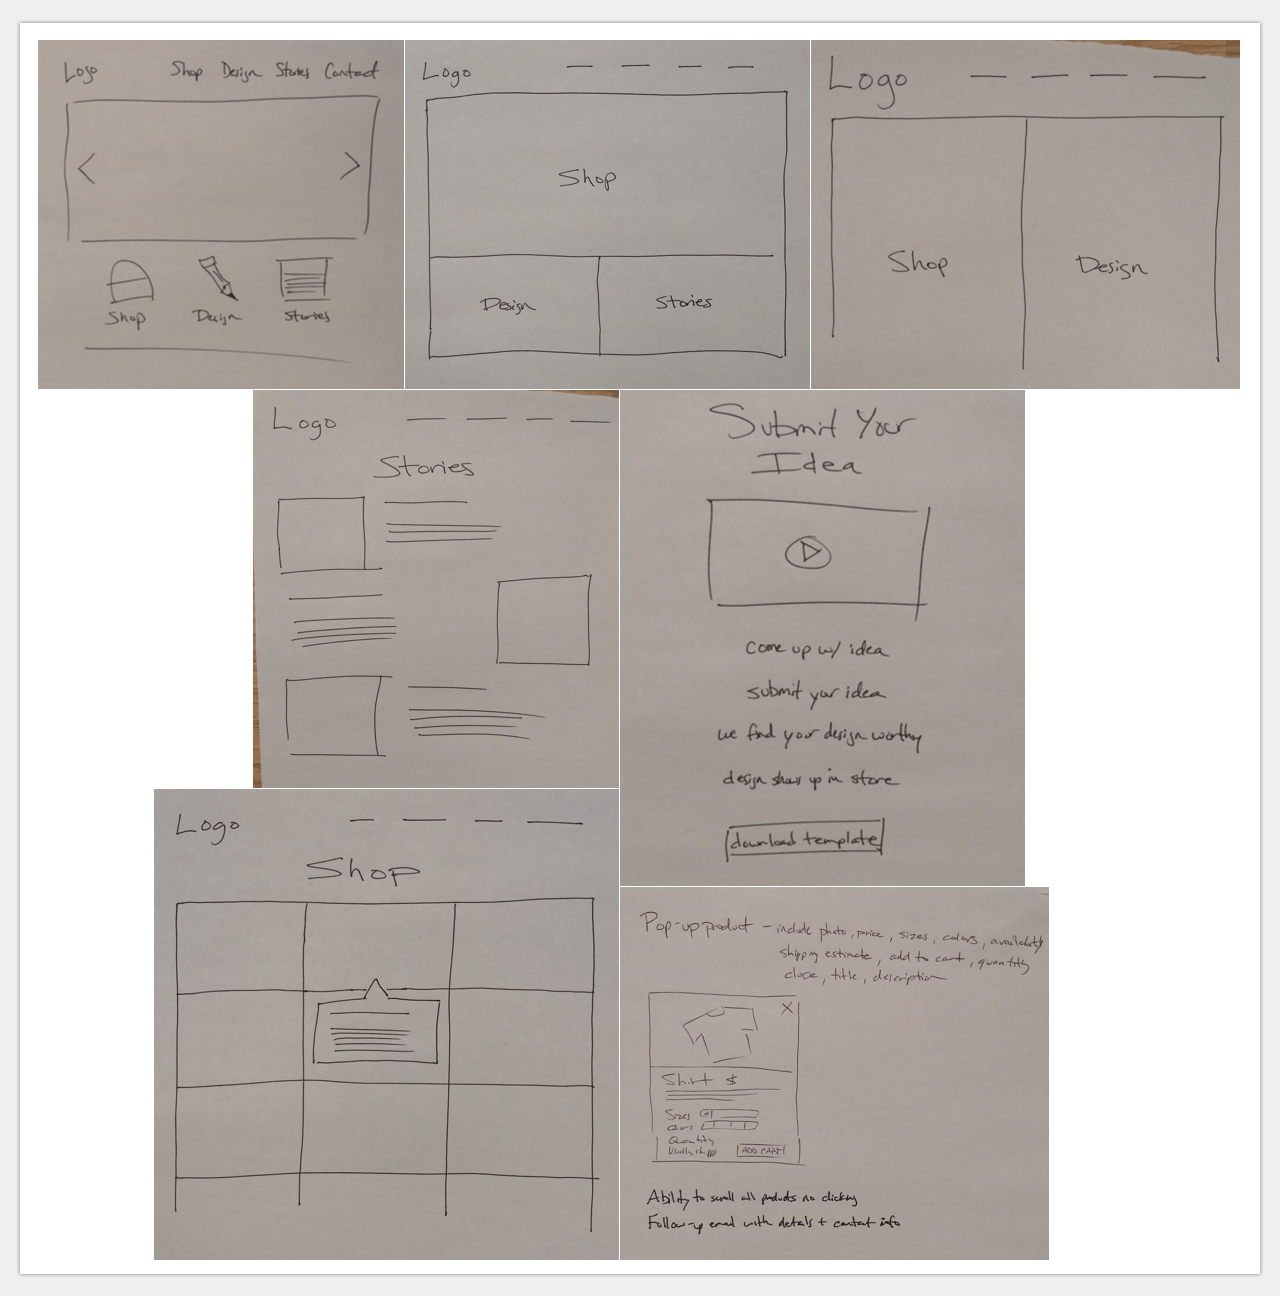 Logo Shop Design Stories Contact
Shop Design Stories
Logo
Shop
Design Stories
Logo
Shop Design
Logo
Stories
Submit Your
Idea
come up w/ idea
submit your idea
we find your design worthy
design shows up in store
download template
Logo
Shop
Pop-up product - include photo, price, sizes, colors, availability
shipping estimate, add to cart, quantity
close, title, description
X
Shirt $
Sizes
Colors
Quantity
Usually ships ADD CART
Ability to scroll all products no clicking
Follow-up email with details + contact info